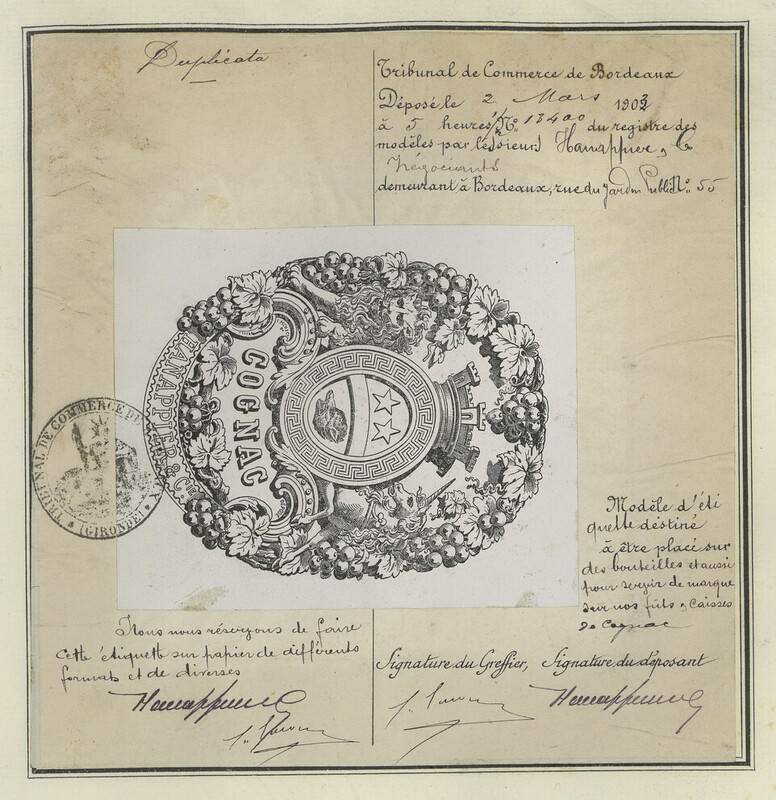 Duplicata
Tribunal de Commerce de Bordeaux
Déposé le 2 Mars 1903
à 5 heures N° 13400 du registre des
modèles par le(s) sieur(s) Hanappier &
Négociants
demeurant à Bordeaux, rue du Jardin Public N° 55
HANAPPIER & C
COGNAC
TRIBUNAL DE COMMERCE DE
(GIRONDE)
Modèle d'éti
quette destiné
à être placé sur
des bouteilles et aussi
pour servir de marque
sur nos fûts & caisses
de Cognac
Nous nous réservons de faire
cette étiquette sur papier de différents
formats et de diverses
Signature du Greffier, Signature du déposant
Hanappier
Hanappier